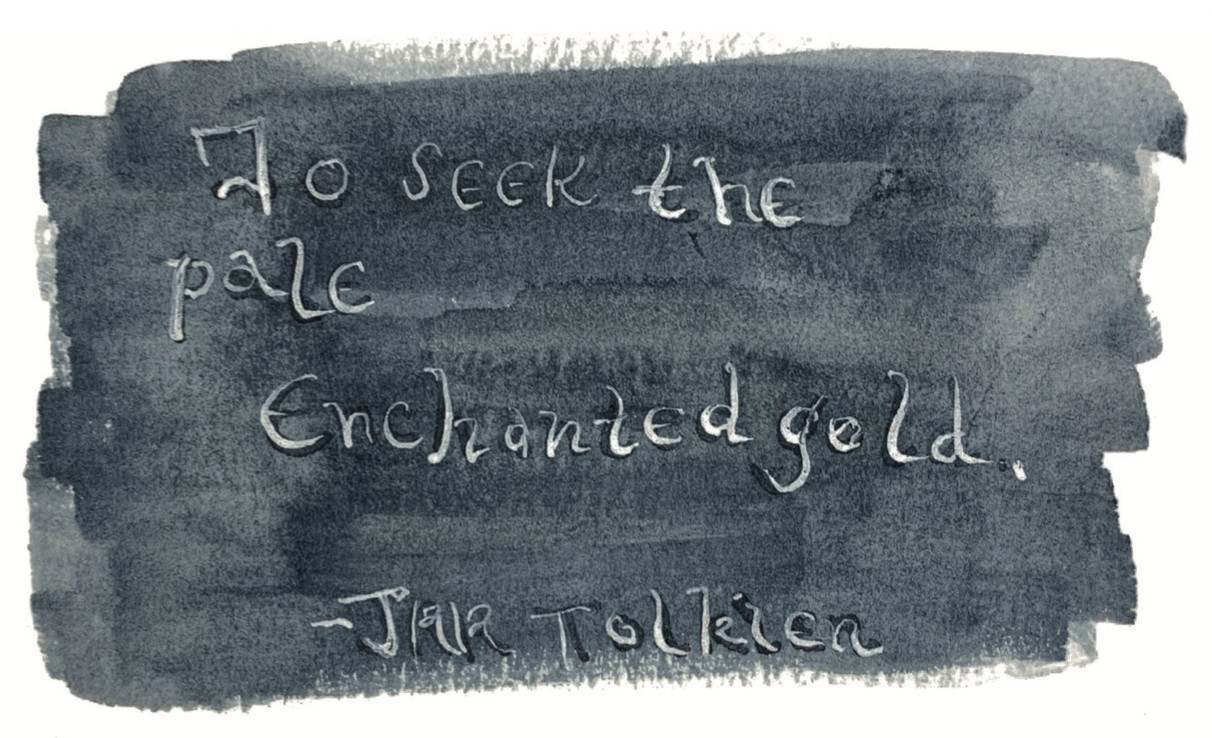 To seek the
pale
Enchanted gold.
-JRR Tolkien